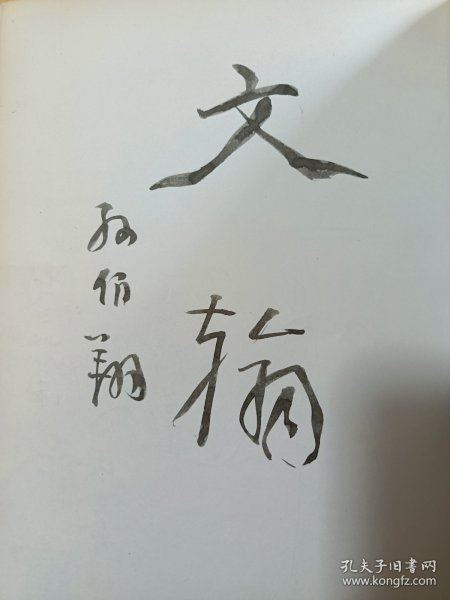 文翰
孙伯翔
孔夫子旧书网
www.kongfz.com